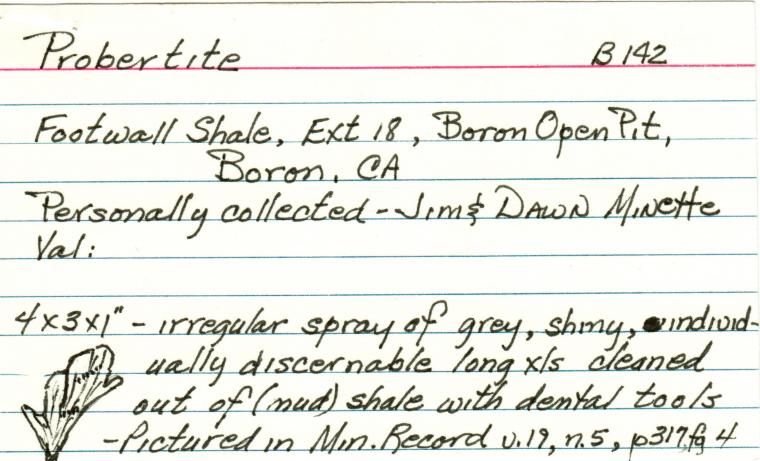 Probertite B142
Footwall Shale, Ext 18, Boron Open Pit,
Boron, CA
Personally collected -- Jim & Dawn Minette
Val:
4x3x1" - irregular spray of grey, shiny, individ-
ually discernable long xls cleaned
out of (mud) shale with dental tools
-Pictured in Min. Record v.19, n.5, p317, fg 4